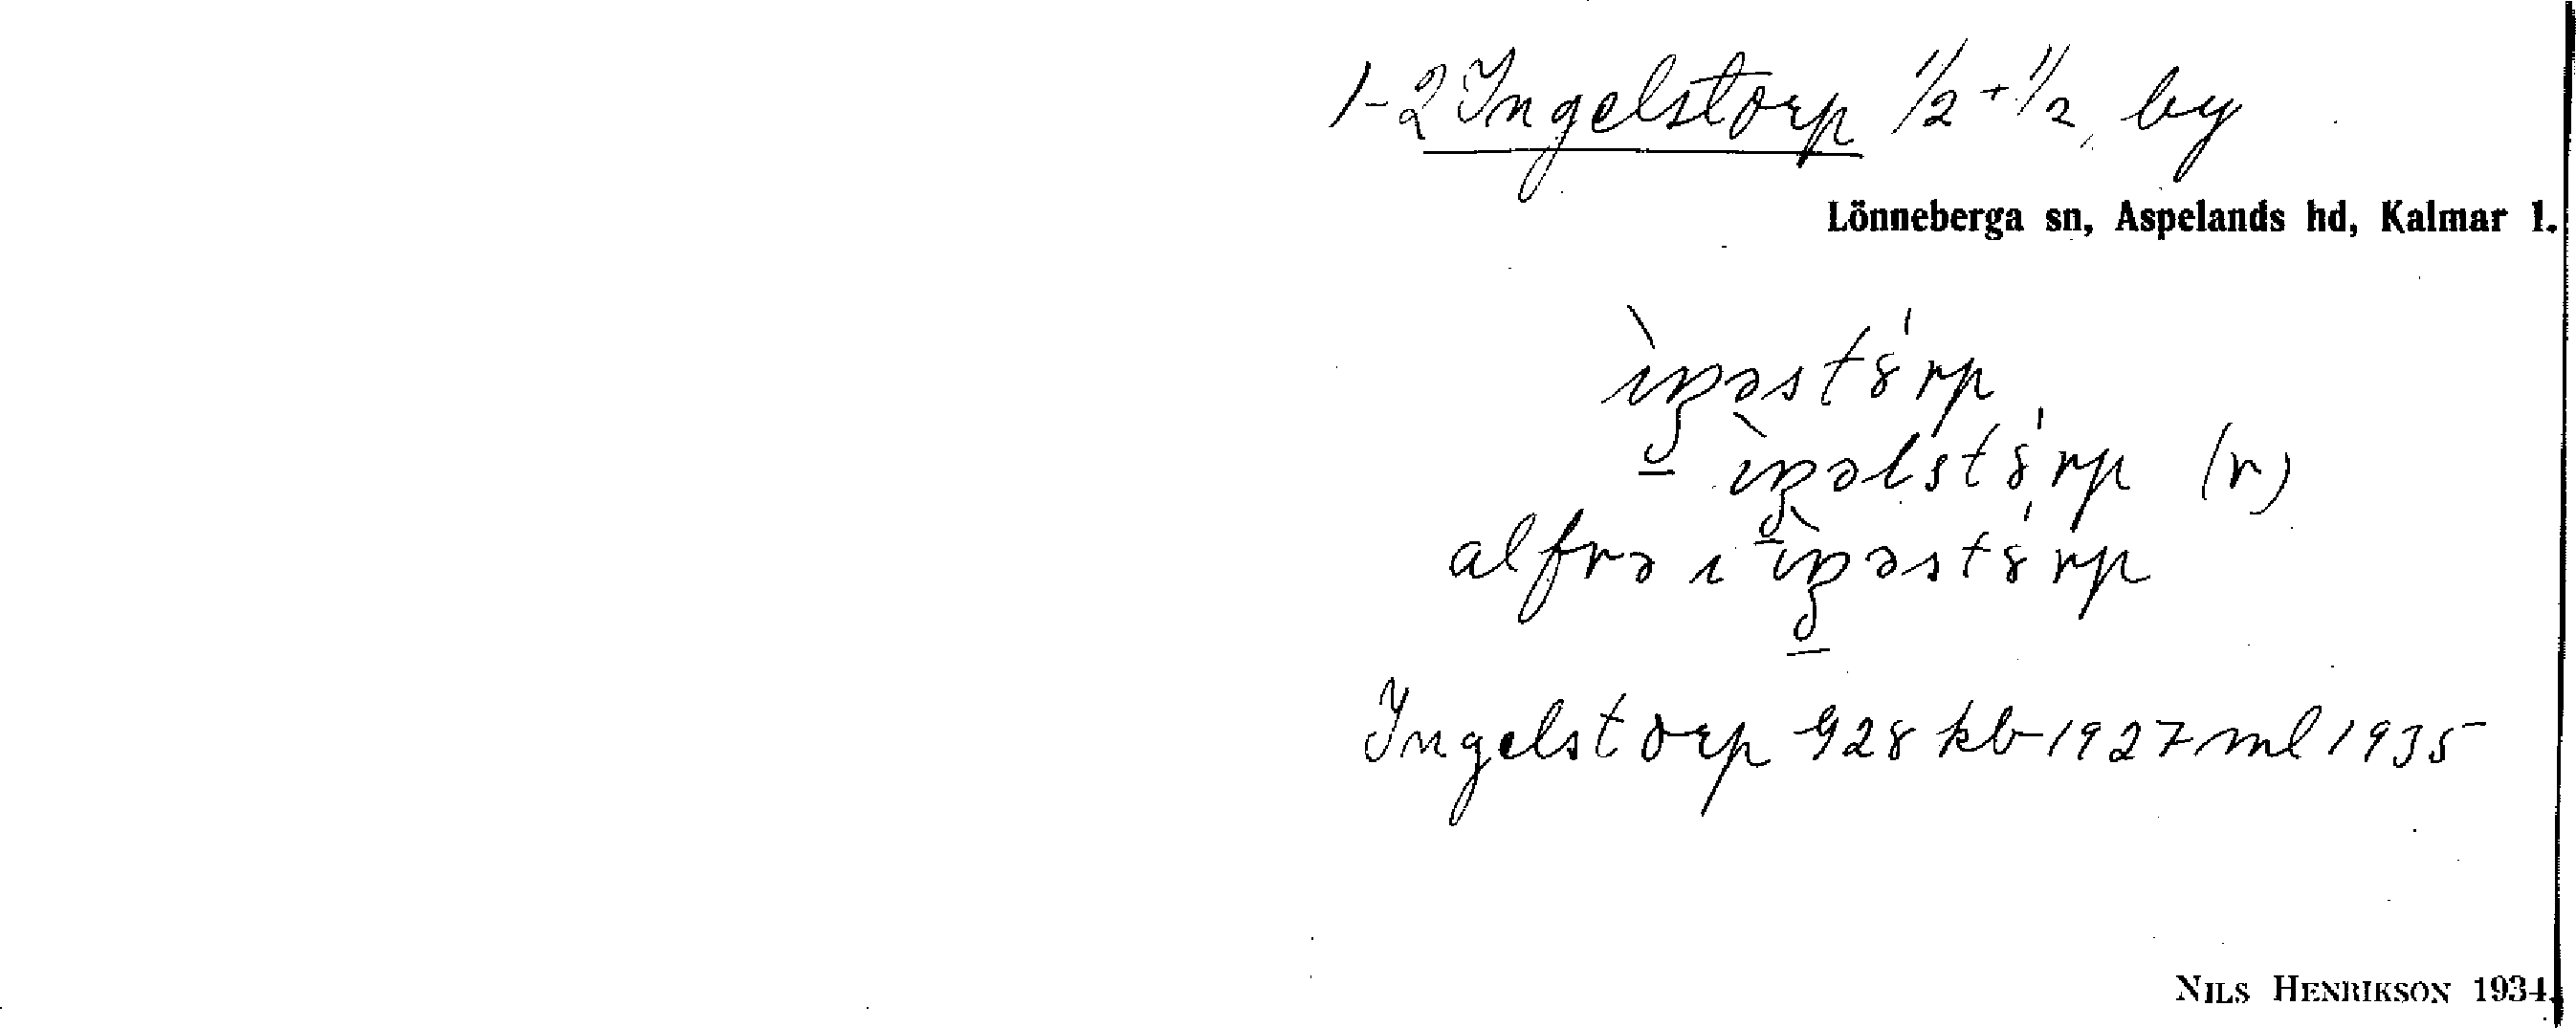 1-2 Ingelstorp 1/2 + 1/2, by
Lönneberga sn, Aspelands hd, Kalmar l.
(r)
alfrə ı
Ingelstorp 928 kb 1927 ml 1935
NILS HENRIKSON 1934.